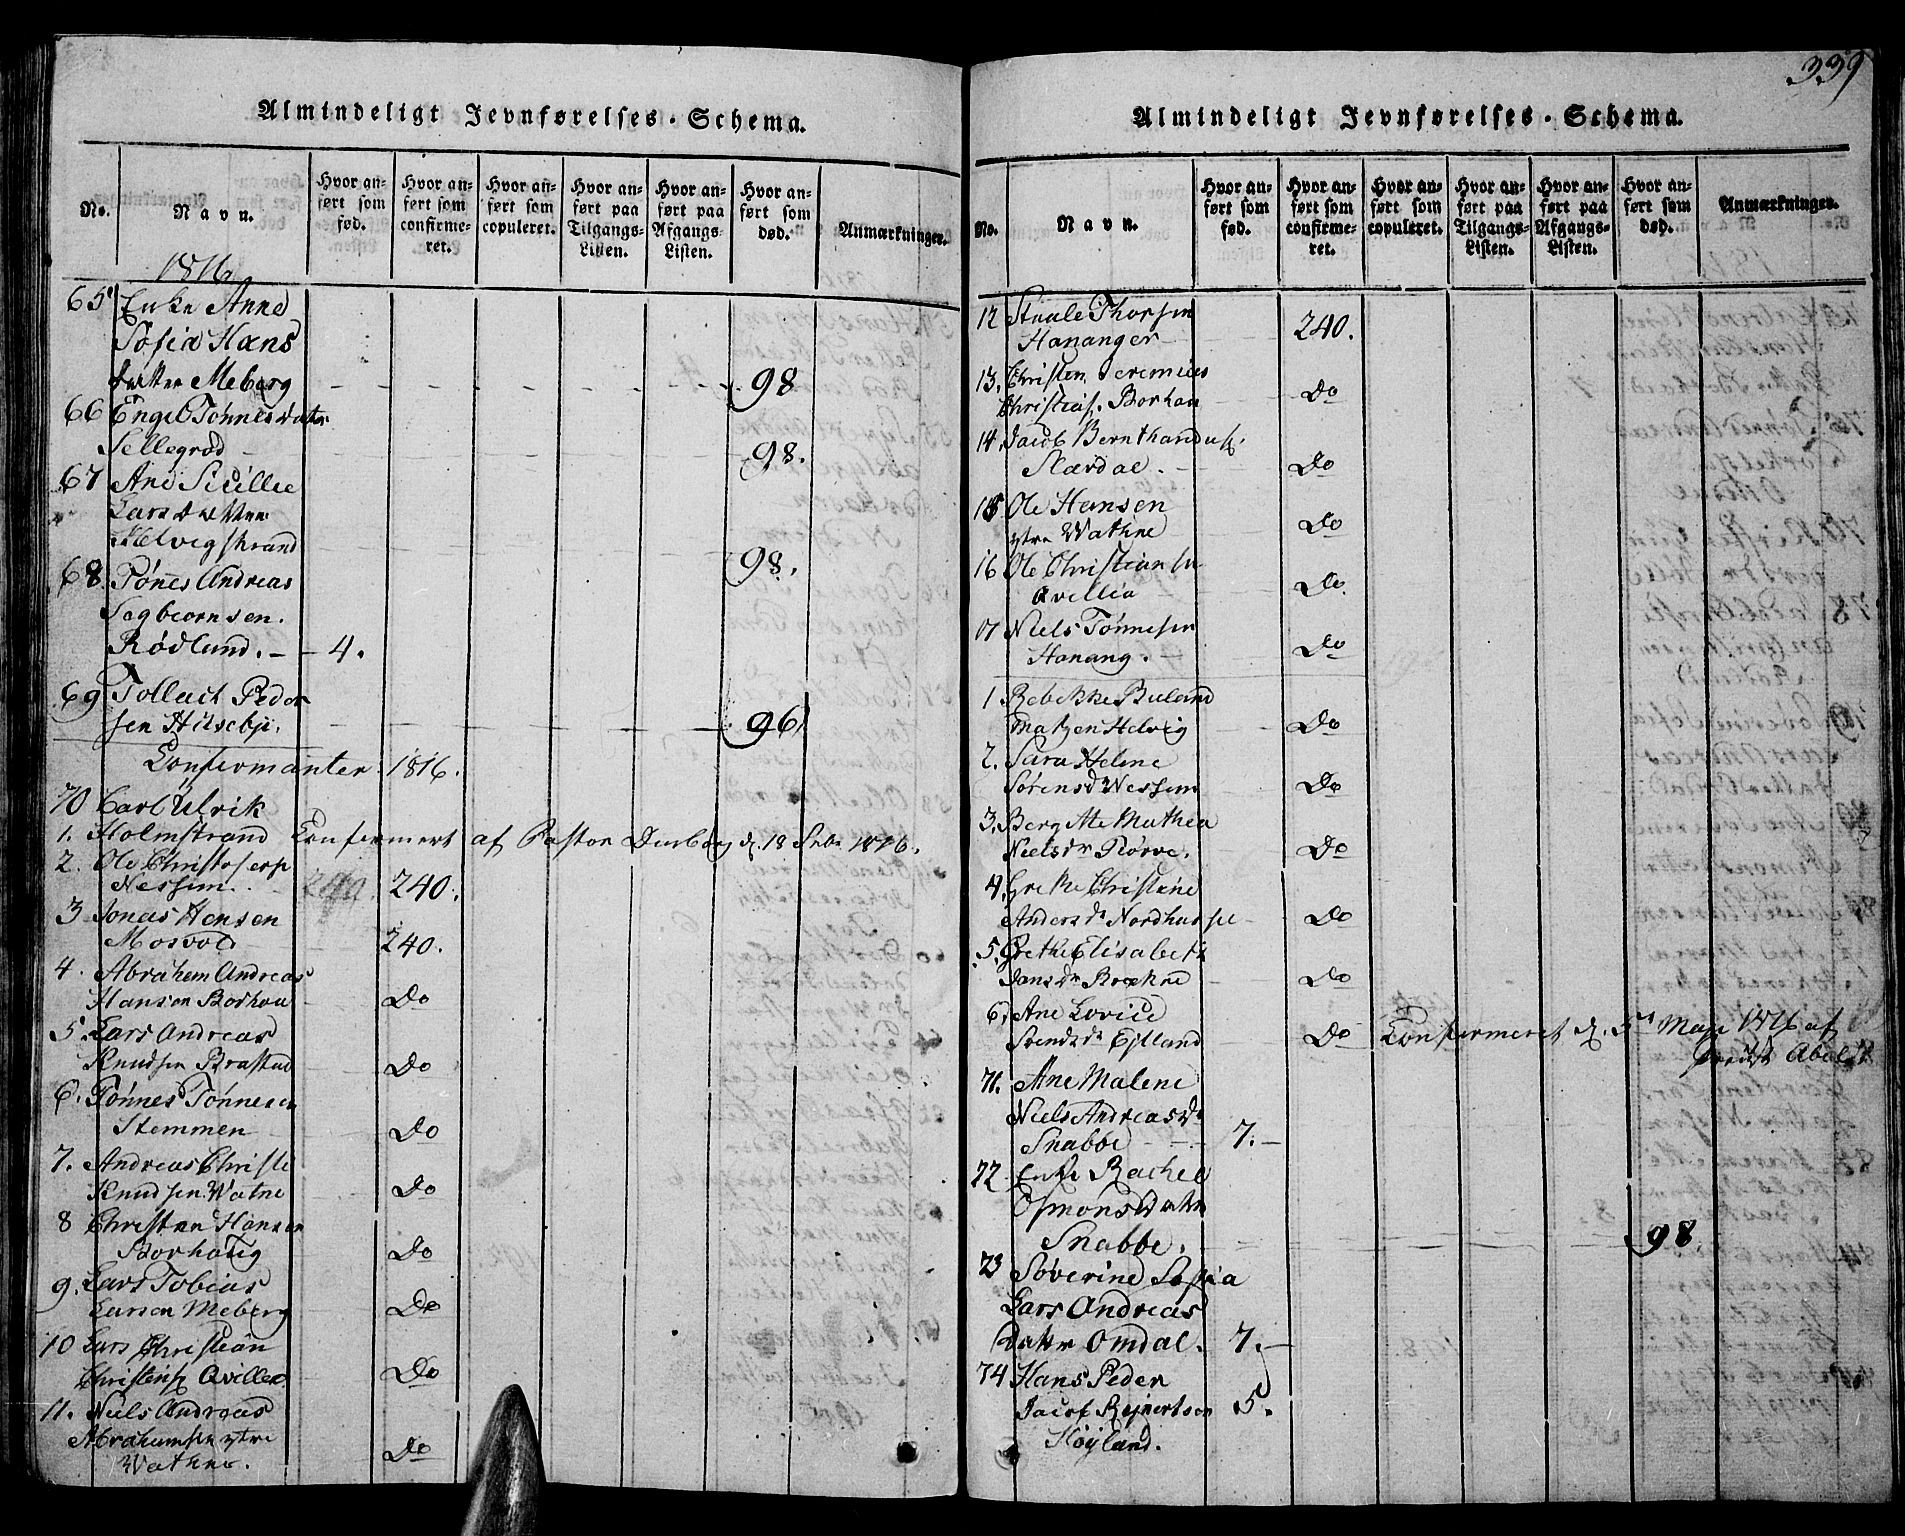 Almindeligt Jevnførelses-Schema.
No.
Navn.
Hvor anført som fød.
Hvor anført som confirmeret.
Hvor anført som copuleret.
Hvor anført paa Tilgangs-Listen.
Hvor anført paa Afgangs-Listen.
Hvor anført som død.
Anmærkninger.
1816
65 Enke Anne
Sofia Hans
datter Meberg 98
66 Engel Tønnesdatter
Sellegrod 98.
67 Ane Sicillie
Lars datter
Helvigstrand 98.
68. Tønnes Andreas
Segbeornsen.
Rødland. 4.
69. Tollach Peder
sen Huseby. 96
Confirmanter 1816.
70 Carl Ulrik
1. Holmstrand Confermert af Pastor d. 18 1816.
2. Ole
Nessim. 240 240.
3 Jonas Hansen
Mosvold 240.
4. Abraham Andreas
Hansen Borhou Do
5. Lars Andreas
Knudsen Brastad Do
6. Tønnes Tønnesen
Stemmen Do
7. Andreas Christi
Knudsen Watne Do
8 Christen Hansen
Borhoug Do
9. Lars Tobias
Larsen Meberg Do
10 Lars Christian
Qvillea Do
11. Niels Andreas
Abrahamsen ytre
Wathne. Do
339
Almindeligt Jevnførelses-Schema.
No.
Navn.
Hvor anført som fød.
Hvor anført som confirmeret.
Hvor anført som copuleret.
Hvor anført paa Tilgangs-Listen.
Hvor anført paa Afgangs-Listen.
Hvor anført som død.
Anmærkninger.
12 Staale Thorsen
Hananger 240.
13. Christen Jeremies
Borhau Do
14. Jacob
Slærdal. Do
15 Ole Hansen
ytre Wathne Do
16 Ole Christiansen
Qvillia Do.
17 Niels Tønnesen
Hanang. Do
1 Rebekke Buland
Helvig Do
2. Sara Helene
Sørensdr Nessim Do
3. Bergitte Mathea
Nielsdr Rørve. Do
4. Grethe Christine
Andersdr Nordhassel Do
5. Grethe Elisabeth
Jansdr Brækne Do
6. Ane Lovice
Svendsdr Ejlland Do Confermeret d. 5te Maji 1816 af
Provst
71. Ane Malene
Niels Andreasdr
Snabbe 7.
72 Enke Rachel
Osmonsdatter
Snabbe. 98
73 Søverine Sofia
Lars Andreas
Datter Omdal. 7.
74 Hans Peder
Jacob Rejnertsen 5.
Høyland.